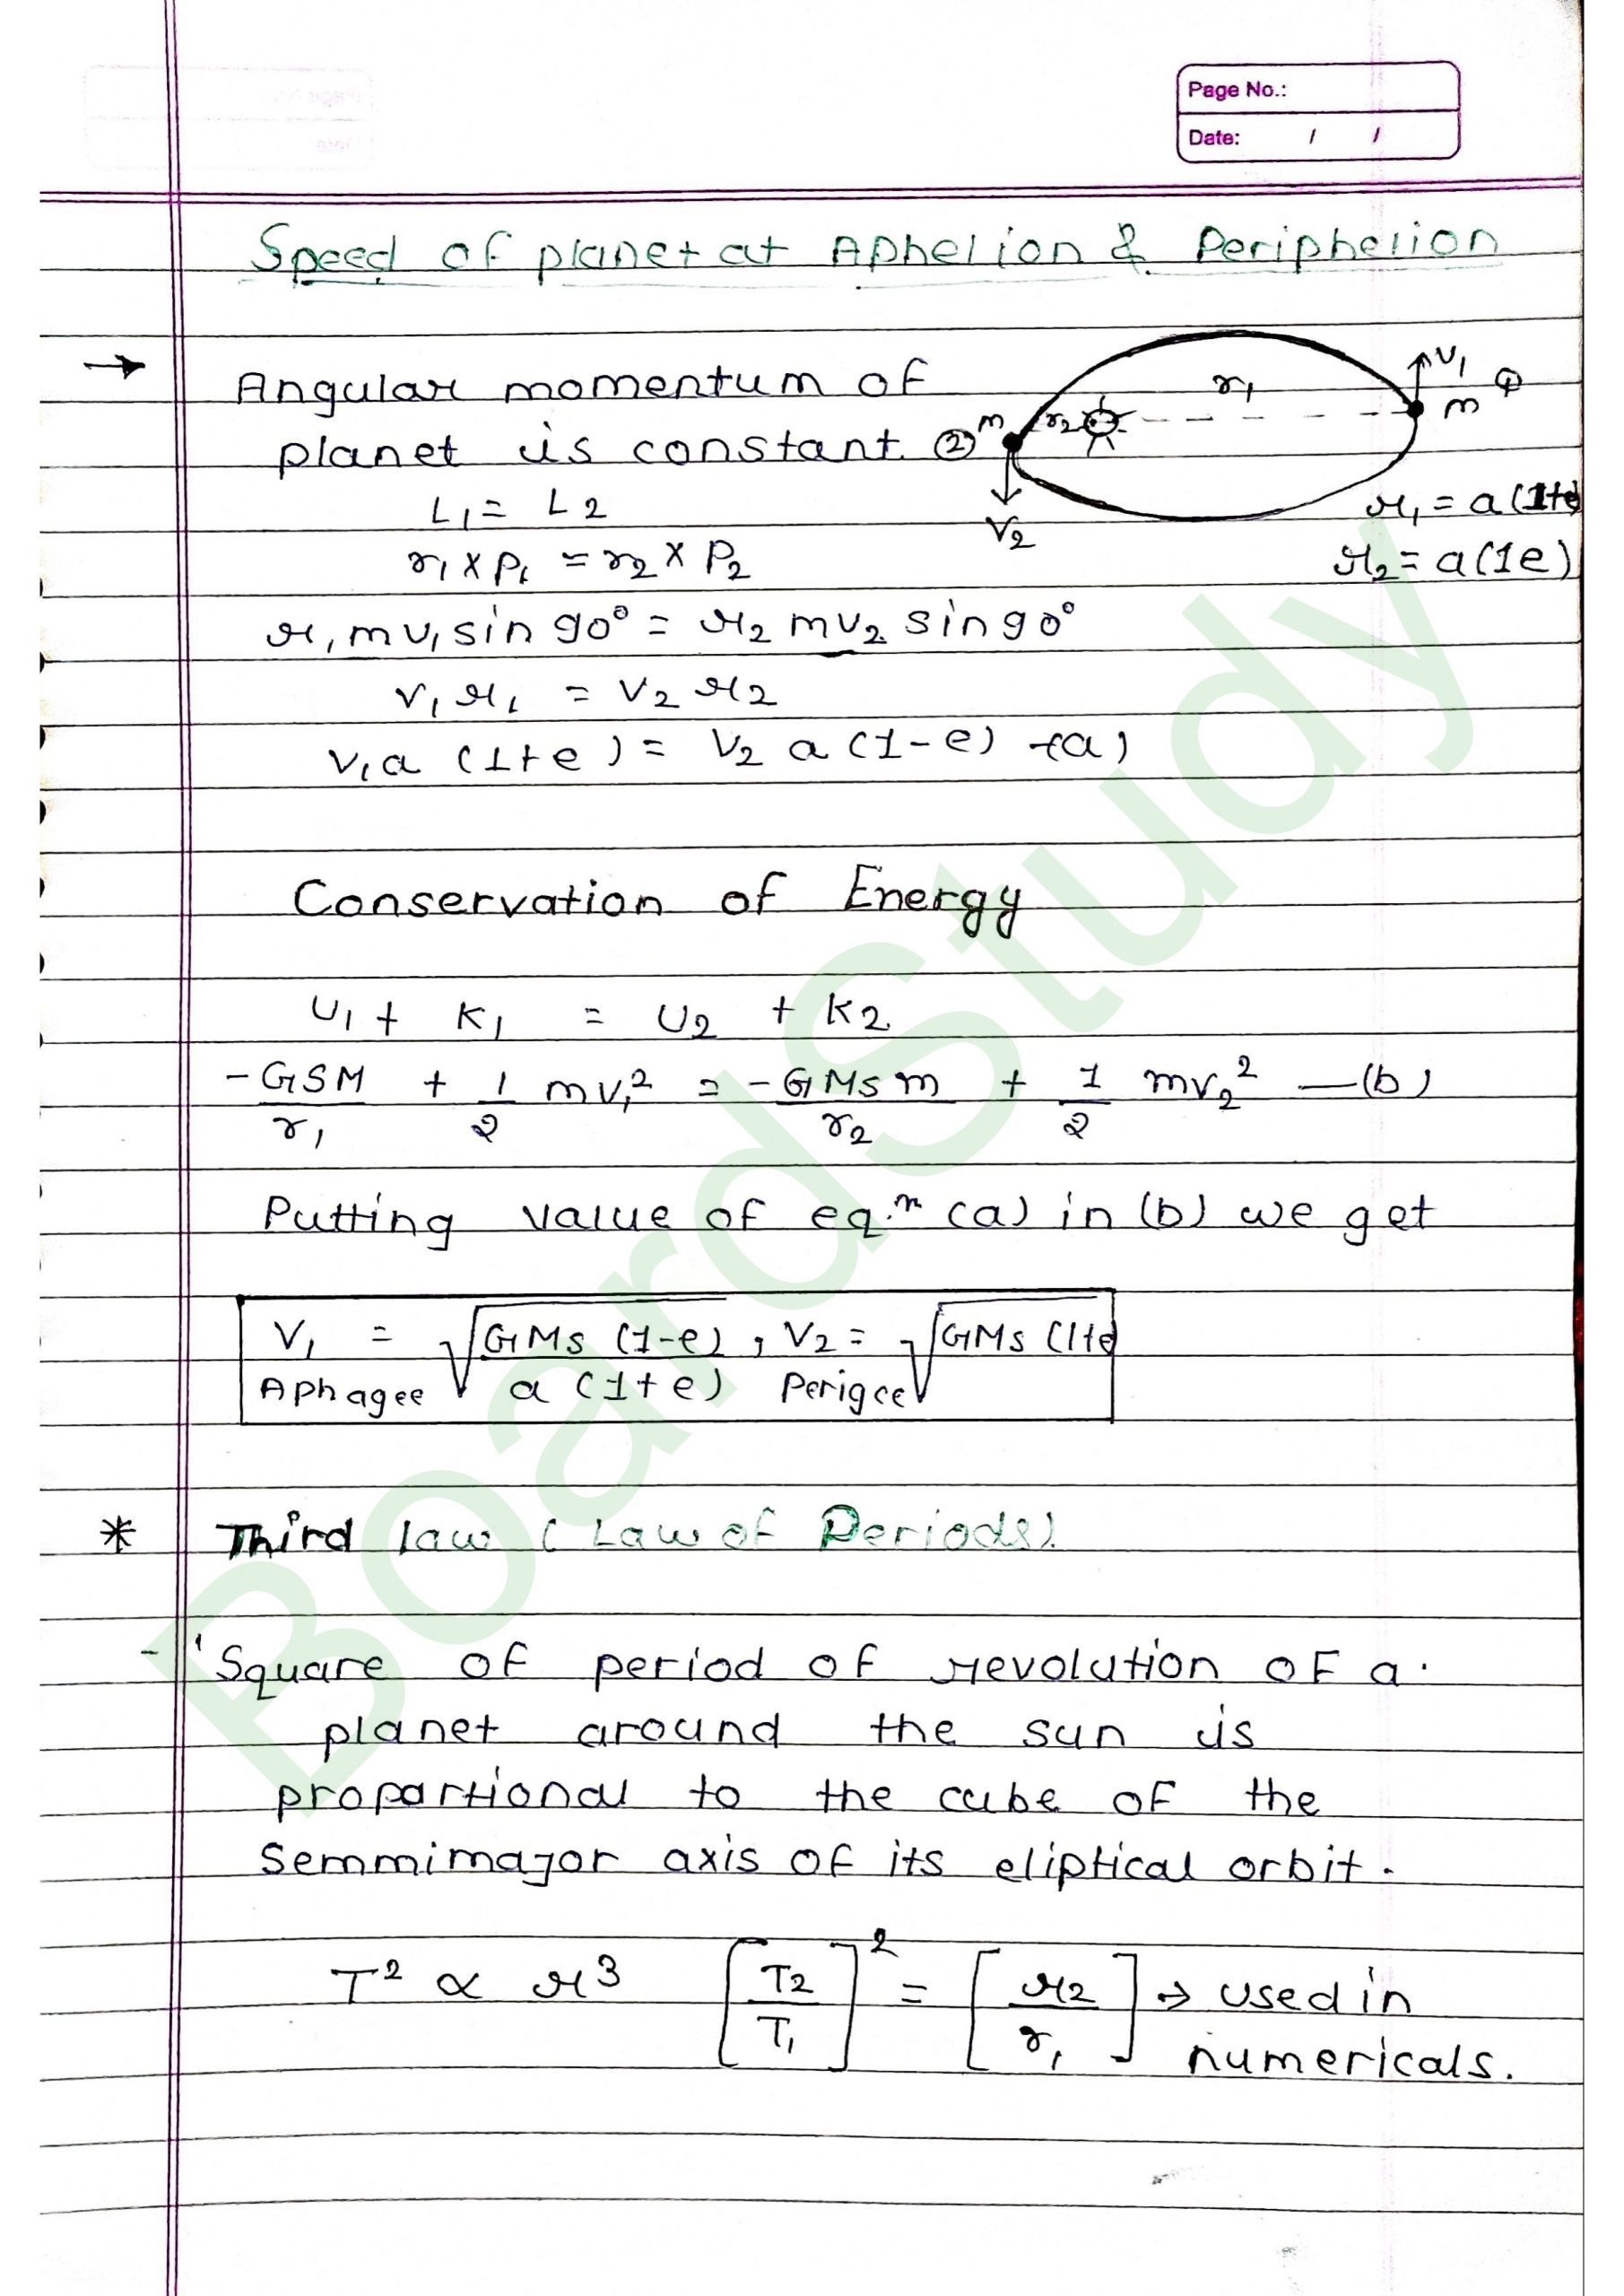 Page No.:
Date: / /
Speed of planet at Aphelion & Periphelion
→ Angular momentum of
planet is constant.
② m r2 r1 V1 m ①
V2
L1 = L2
r1 = a(1+e
r1 × P1 = r2 × P2
r2 = a(1e)
r1 mv1 sin 90° = r2 mv2 sin 90°
V1 r1 = V2 r2
V1a (1+e) = V2 a (1-e) -(a)
Conservation of Energy
U1 + K1 = U2 + K2
-GSM/r1 + 1/2 mv1² = -GMsm/r2 + 1/2 mv2² —(b)
Putting value of eq.n (a) in (b) we get
V1 = √GMs (1-e) , V2 = √GMs (1+e
Aphagee a (1+e) Perigee
* Third law ( Law of Periods)
- 'Square of period of revolution of a.
planet around the sun is
propartional to the cube of the
Semmimajor axis of its eliptical orbit.
T² ∝ r³ [T2/T1]² = [r2/r1] → used in
numericals.
BoardStudy